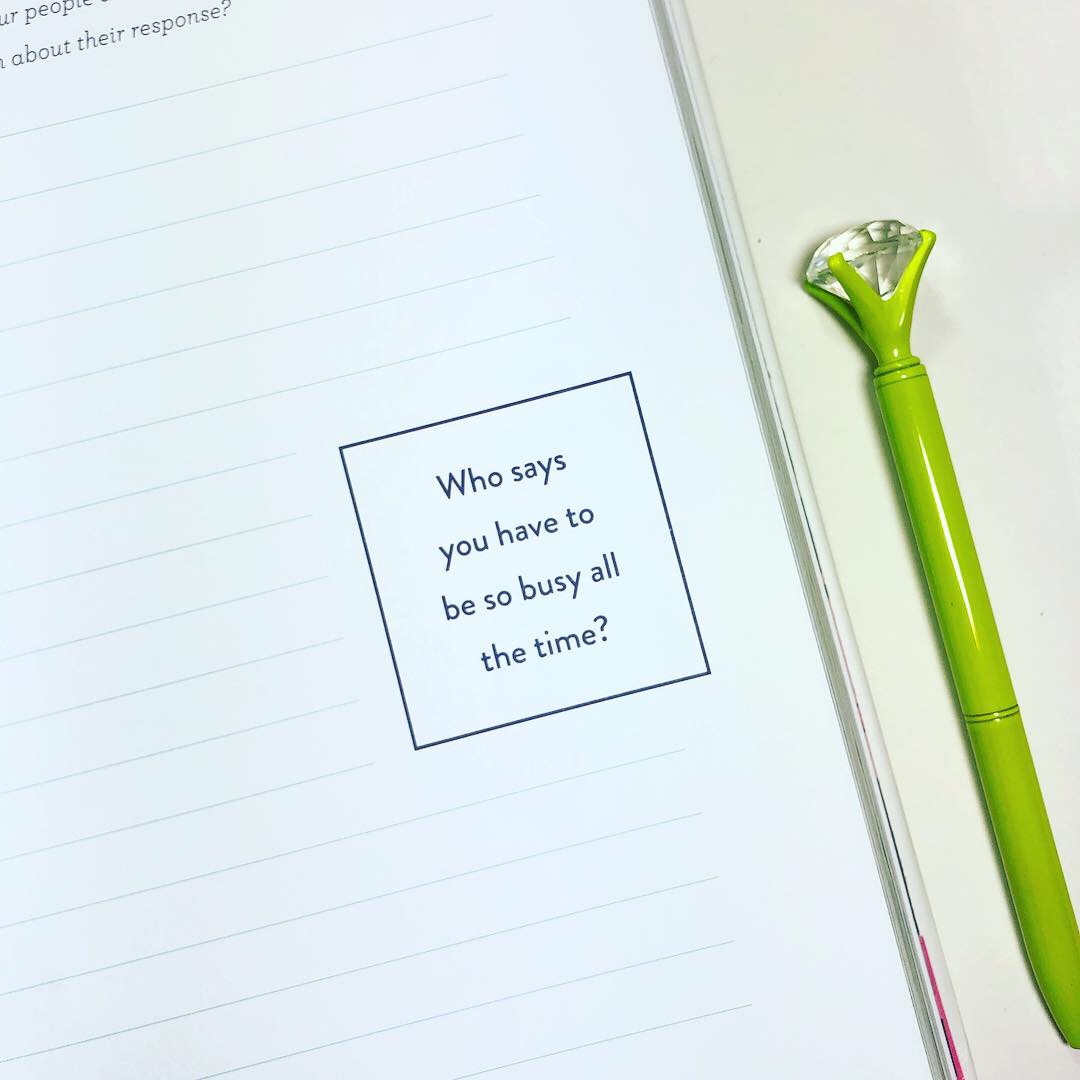 ur people
about their response?
Who says
you have to
be so busy all
the time?